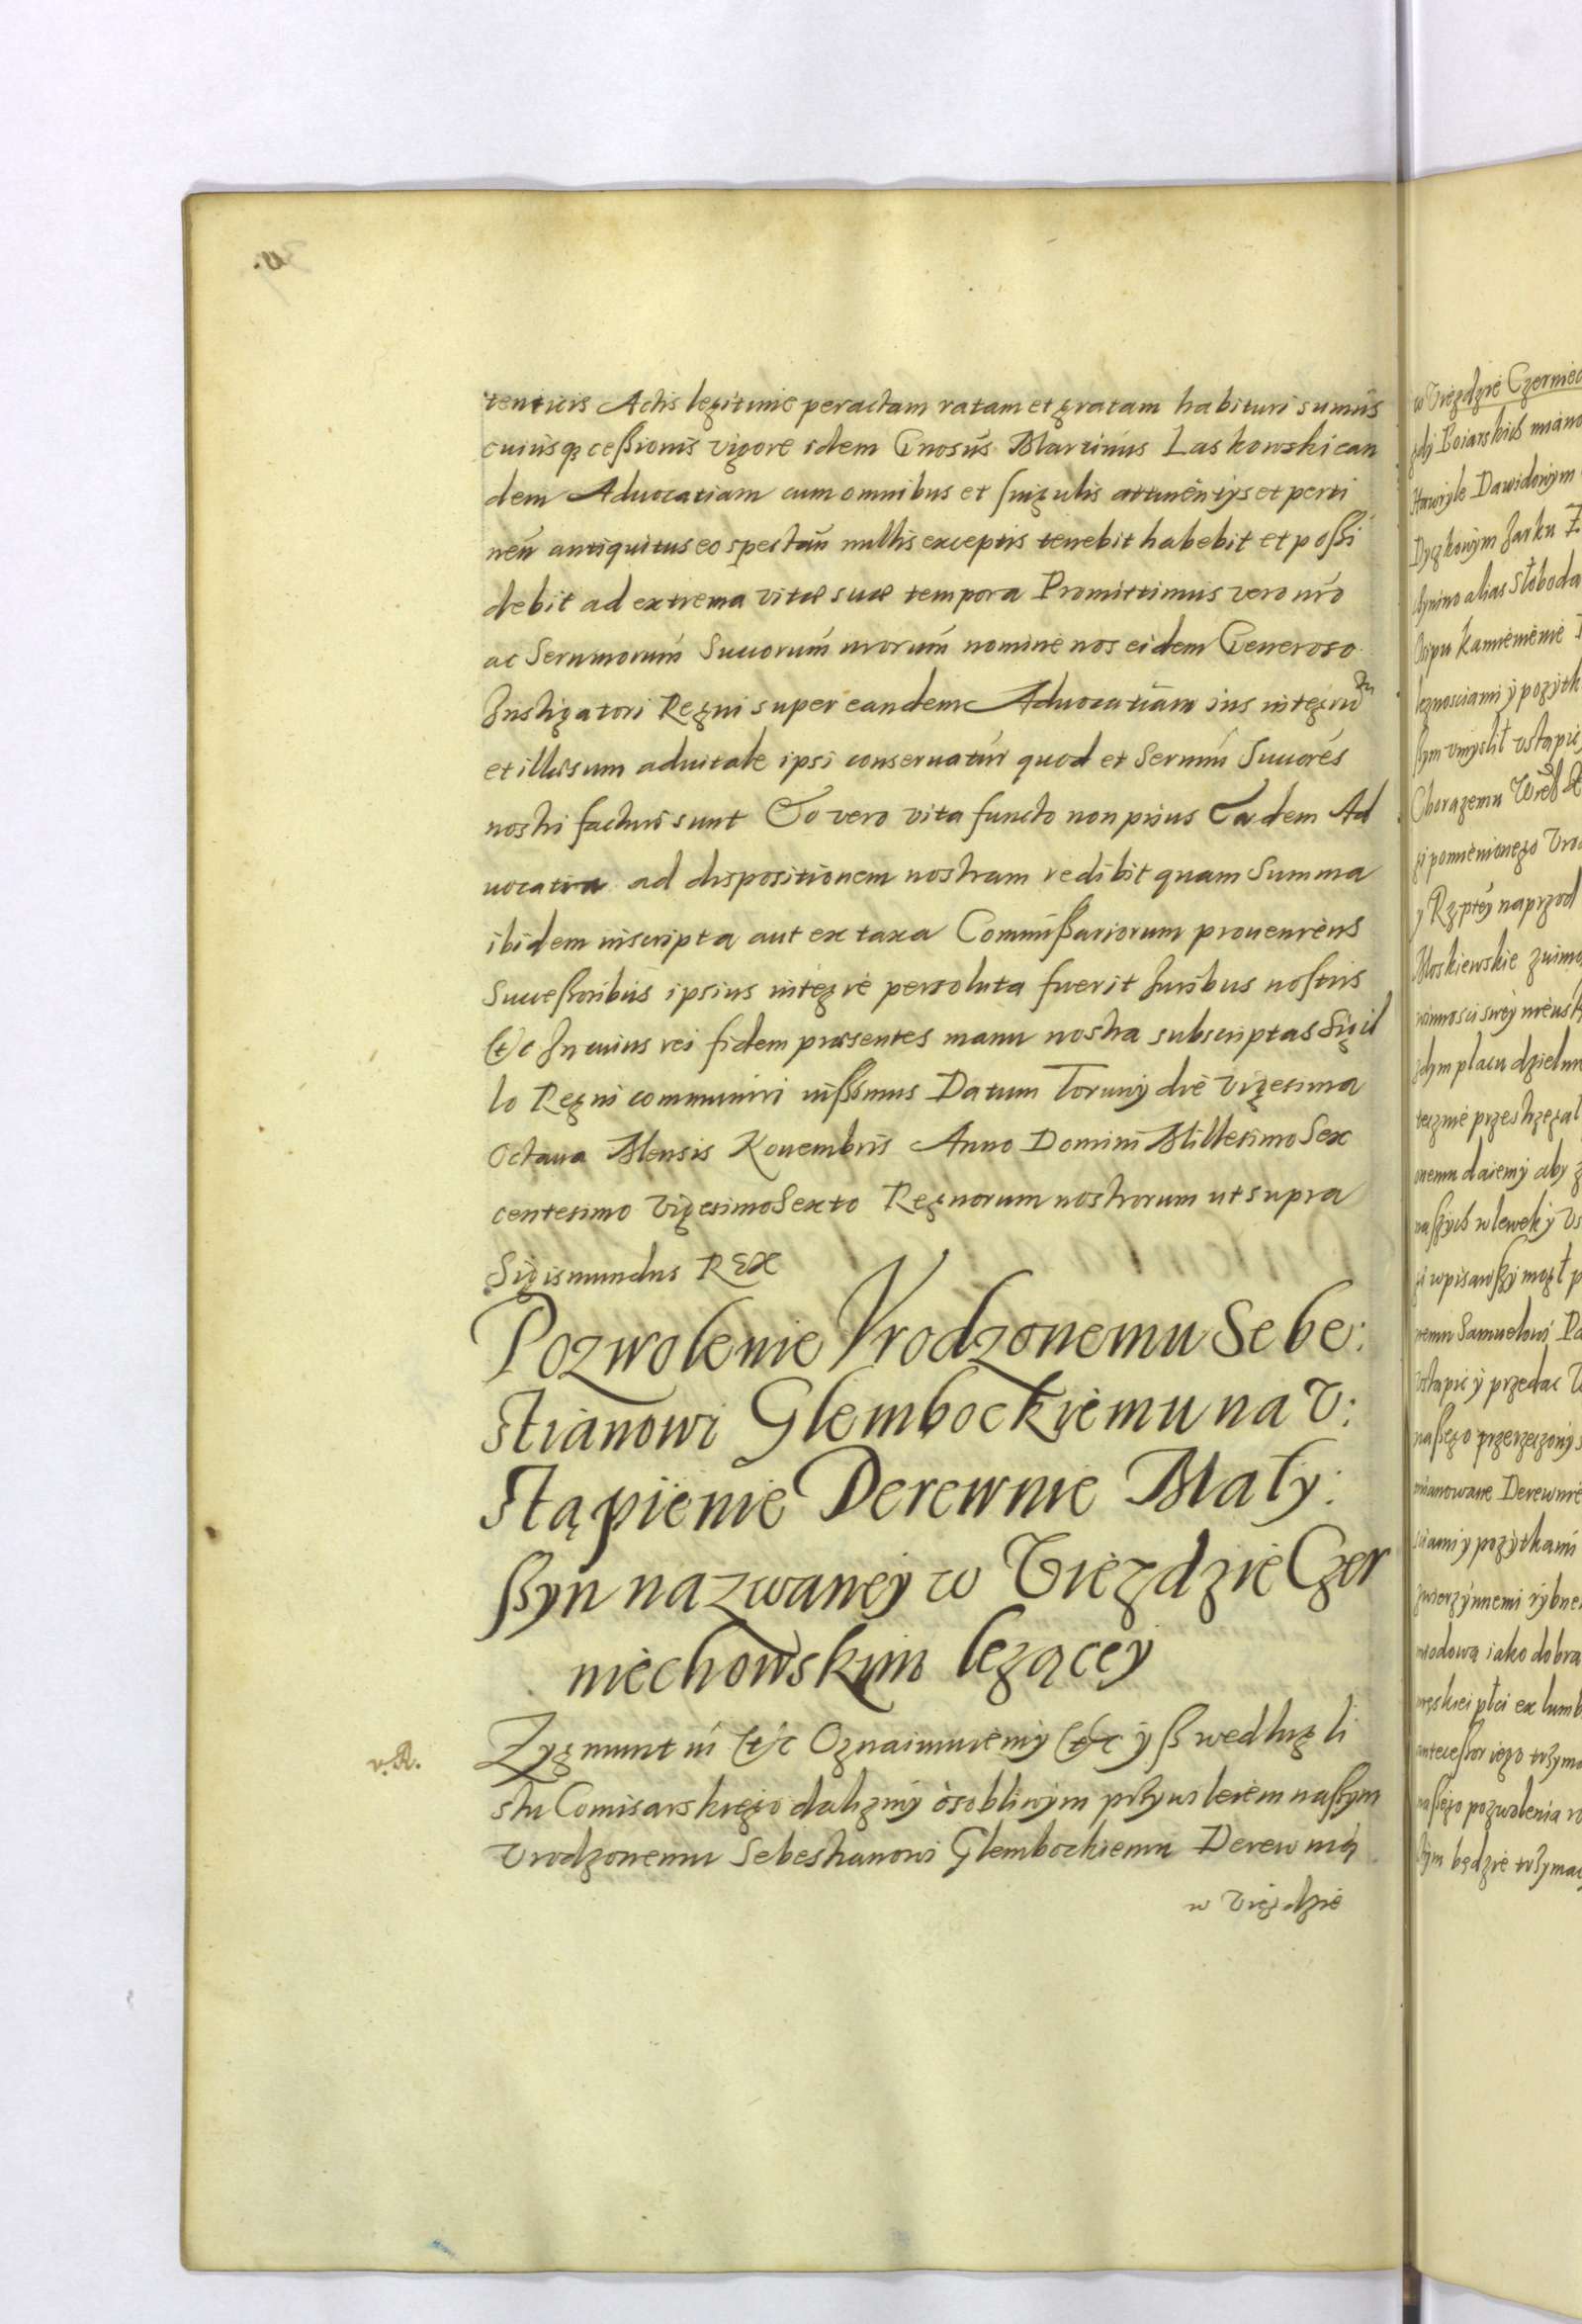 tenticis Actis legitime peractam ratam et gratam habituri sumus
cuiusq3 ceßionis vigore idem Gnosus Martinus Laskowski ean
dem Aduocatiam cum omnibus et singulis attinentijs et perti
nen antiquitus eo spectan nullis exceptis tenebit habebit et poßi
debit ad extrema vitæ suæ tempora Promittimus vero nro
ac Sernmorum Succorum nrorum nomine nos eidem Generoso
Instigatori Regni super eandem Aduocatiam ius integrum
et illæsum aduitale ipsi conseruatur quod et Sernmi Succores
nostri facturi sunt Eo vero vita functo non prius Eadem Ad
uocatia ad dispositionem nostram redibit quam Summa
ibidem inscripta aut ex taxa Commißariorum proueniens
Succeßoribus ipsius integre persoluta fuerit Iuribus nostris
etc In cuius rei fidem præsentes manu nostra subscriptas Sigil
lo Regni communiri iußimus Datum Toruny die Vigesima
Octaua Mensis Nouembris Anno Domini Millesimo Sex
centesimo Vigesimo Sexto Regnorum nostrorum ut supra
Sigismundus REX
Pozwolenie Vrodzonemu Sebe:
stianowi Glembockiemu na V:
stąpienie Derewnie Mały:
ßyn nazwaney w Vieździe Czer
niechowskim lezącey
v.A.
Zygmunt iii etc Oznaimuiemy etc yß wedlug li
stu Comisarskiego dalizmy osobliwym przywileiem naßym
Vrodzonemu Sebestianowi Glembockiemu Derewnią
w Vieździe
w Vieździe Czerniec
Boiarskich miano
Hawryle Dawidowym
alias Słoboda
leznosciami y pozytk
ßym vmyslił vstąpic
Chorązemu
y Rzptey naprzod
Moskiewskie
zdym placu dzieln
tecznie przestrzegał
onemu daiemy aby
naßych w lewek y
wpisawßy mogł p
nemu Samuelowi Pa
vstąpic y przedac
naßego przerzeczony
mianowane Derewnie
sciami y pozytkami
zwierzynnemi rybne
miodową iako dobra
męskiei płci ex lumb
anteceßor iego trzyma
naßego pozwolenia
tym będzie trzymac